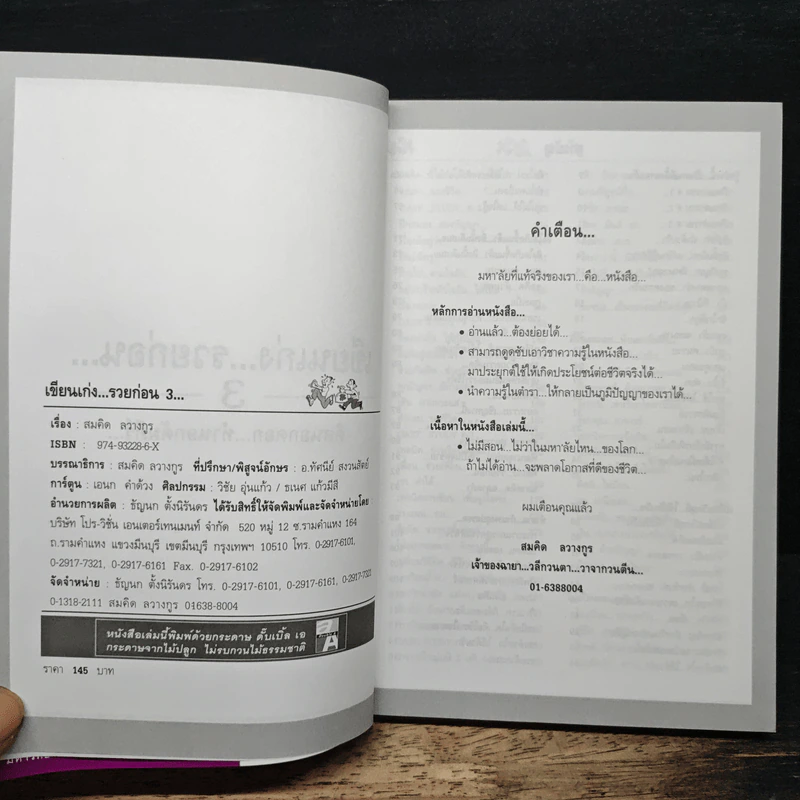 เขียนเก่ง...รวยก่อน 3...
เรื่อง : สมคิด ลวางกูร
ISBN : 974-93228-6-X
บรรณาธิการ : สมคิด ลวางกูร ที่ปรึกษา/พิสูจน์อักษร : อ.ทัศนีย์ สงวนสัตย์
การ์ตูน : เอนก คำด้วง ศิลปกรรม : วิชัย อุ่นแก้ว / ธเนศ แก้วมีสี
อำนวยการผลิต : ธัญนก ตั้งนิรันดร ได้รับสิทธิ์ให้จัดพิมพ์และจัดจำหน่ายโดย :
บริษัท โปร-วิชั่น เอนเตอร์เทนเมนท์ จำกัด 520 หมู่ 12 ซ.รามคำแหง 164
ถ.รามคำแหง แขวงมีนบุรี เขตมีนบุรี กรุงเทพฯ 10510 โทร. 0-2917-6101,
0-2917-7321, 0-2917-6161 Fax. 0-2917-6102
จัดจำหน่าย : ธัญนก ตั้งนิรันดร โทร. 0-2917-6101, 0-2917-6161, 0-2917-7321
0-1318-2111 สมคิด ลวางกูร 01-638-8004
หนังสือเล่มนี้พิมพ์ด้วยกระดาษ ดั๊บเบิ้ล เอ
กระดาษจากไม้ปลูก ไม่รบกวนไม้ธรรมชาติ
ราคา 145 บาท
คำเตือน...
มหา'ลัยที่แท้จริงของเรา...คือ...หนังสือ...
หลักการอ่านหนังสือ...
• อ่านแล้ว...ต้องย่อยได้...
• สามารถดูดซับเอาวิชาความรู้ในหนังสือ...
มาประยุกต์ใช้ให้เกิดประโยชน์ต่อชีวิตจริงได้...
• นำความรู้ในตำรา...ให้กลายเป็นภูมิปัญญาของเราได้...
เนื้อหาในหนังสือเล่มนี้...
• ไม่มีสอน...ไม่ว่าในมหา'ลัยไหน...ของโลก...
ถ้าไม่ได้อ่าน...จะพลาดโอกาสที่ดีของชีวิต...
ผมเตือนคุณแล้ว
สมคิด ลวางกูร
เจ้าของฉายา...วลีกวนตา...วาจากวนตีน...
01-6388004